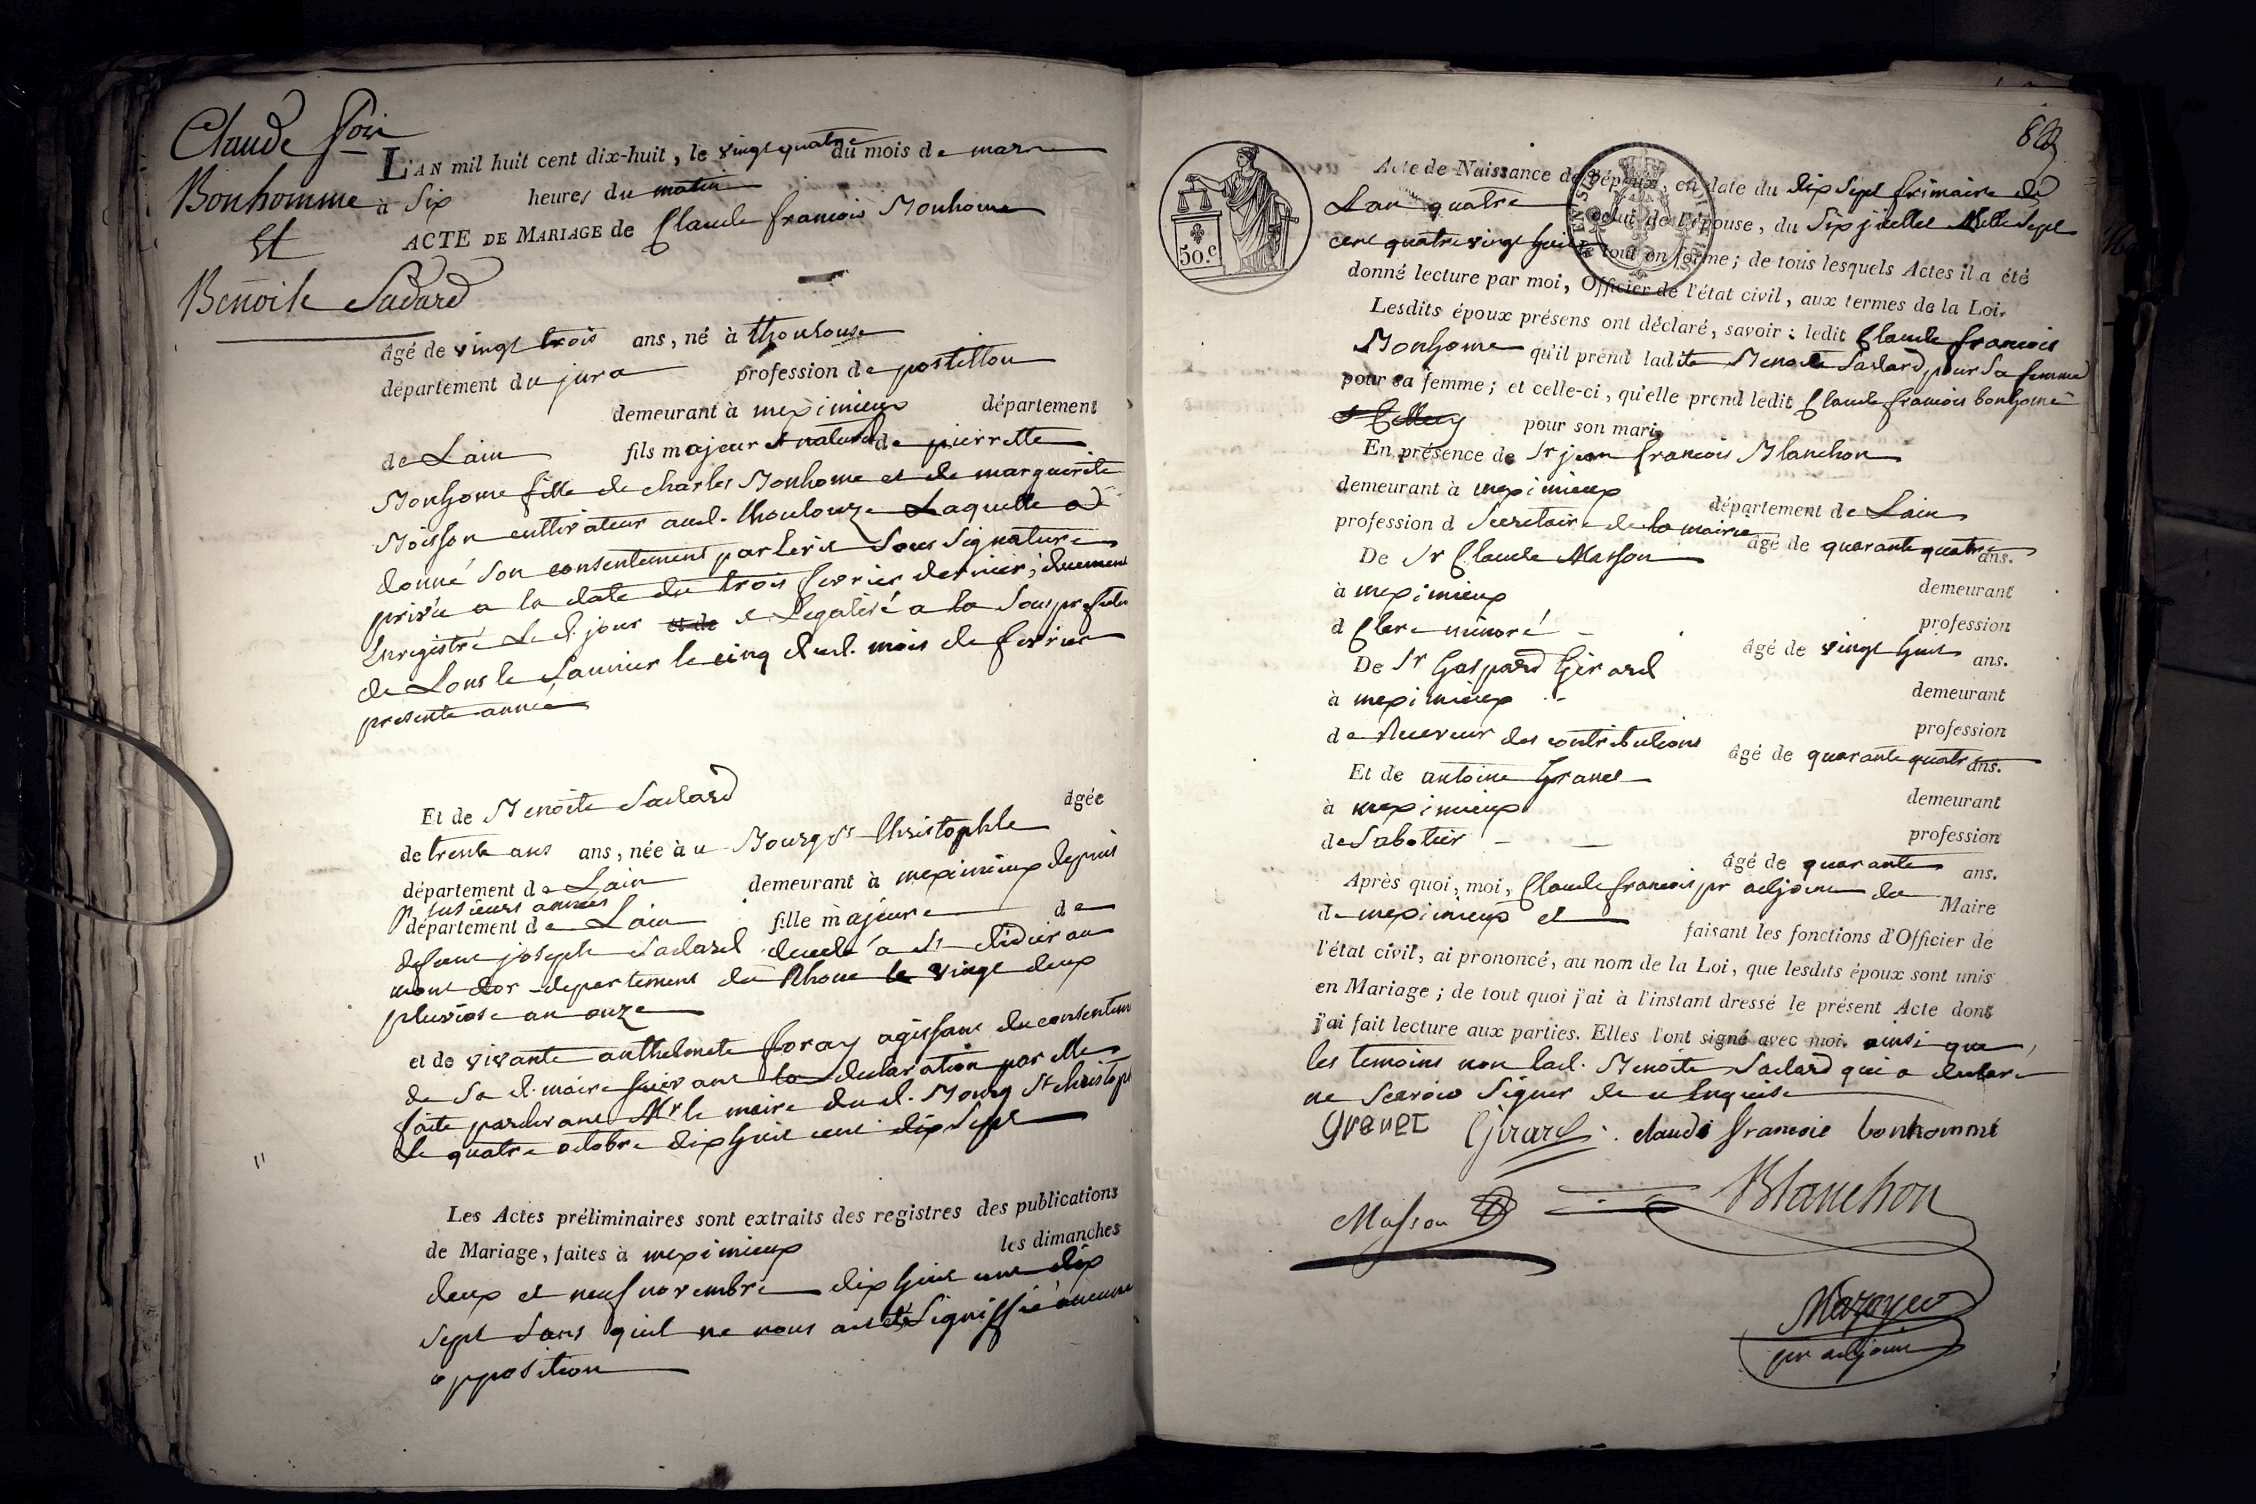 Claude fois
Bonhomme
Et
Benoite Sadard
L'AN mil huit cent dix-huit, le vingt quatre du mois de mars
à Six heures du matin
ACTE DE MARIAGE de Claude francois Bonhome
âgé de vingt trois ans, né à thoulouse
département du jura profession de postillon
demeurant à meximieux département
de Lain fils majeur et naturel de pierrette
Bonhome fille de charles Bonhome et de marguerite
Boisson cultivateur aud. thoulouze Laquelle a
donné son consentement par Ecrit sous signature
privée a la date du trois fevrier dernier, duement
Enregistré Le d. jour et de et Legalisé a la Sousprefecture
de Lons le Saunier le cinq dud. mois de fevrier
presente année
Et de Benoite Sadard âgée
de trente ans ans, née à u Bourg St Christophle
département de Lain demeurant à meximieux depuis
plusieurs années
département de Lain fille majeure de
defunt joseph Sadard decedé a St didier au
mont dor departement du Rhone le vingt deux
pluviose an onze
et de vivante anthelmete foray agissant du consentem
de sa d. maire suivant la declaration par elle
faite pardevant Mr le maire dud. Bourg St christop
Le quatre octobre dix huit cent dix Sept
Les Actes préliminaires sont extraits des registres des publications
de Mariage, faites à meximieux les dimanches
deux et neuf novembre dix huit cent dix
sept sans quil ne nous ait été Signiffié aucune
opposition
8
50.c
Acte de Naissance de l'époux, en date du dix Sept frimaire de
Lan quatre celui de l'épouse, du Six juillet Mille Sept
cent quatre vingt huit le tout en forme; de tous lesquels Actes il a été
donné lecture par moi, Officier de l'état civil, aux termes de la Loi.
Lesdits époux présens ont déclaré, savoir: ledit Claude francois
Bonhome qu'il prend ladite Benoite Sadard pour Sa femme
pour sa femme; et celle-ci, qu'elle prend ledit Claude francois bonhome
pour son mari
En présence de Sr jean francois Blanchon
demeurant à meximieux département de Lain
profession d Secretaire de la mairie âgé de quarante quatre ans.
De Sr Claude Masson demeurant
à meximieux profession
d Clerc minoré âgé de vingt huit ans.
De Sr Gaspard Girard demeurant
à meximieux profession
de Receveur des contributions âgé de quarante quatre ans.
Et de antoine Granet demeurant
à meximieux profession
de Sabotier âgé de quarante ans.
Après quoi, moi, Claude francois pr adjoint du Maire
de meximieux et faisant les fonctions d'Officier de
l'état civil, ai prononcé, au nom de la Loi, que lesdits époux sont unis
en Mariage; de tout quoi j'ai à l'instant dressé le présent Acte dont
j'ai fait lecture aux parties. Elles l'ont signé avec moi. ainsi que
les temoins non lad. Benoite Sadard qui a declaré
ne Scavoir Signer de ce Enquise
granet Girard claude francoie bonhomme
Masson Blanchon
Mazoyer
pr adjoint